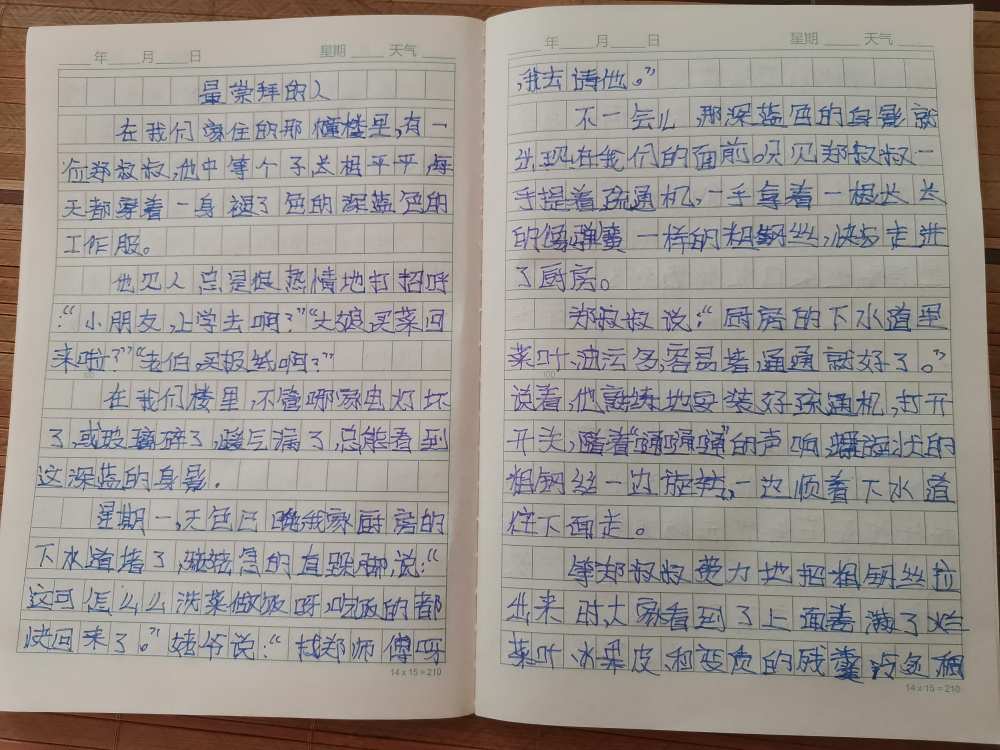 年 月 日 星期 天气
最崇拜的人
在我们家住的那幢楼里,有一
位郑叔叔,他中等个子,长相平平,每
天都穿着一身褪了色的深蓝色的
工作服。
他见人总是很热情地打招呼
:“小朋友,上学去啊?”“大娘,买菜回
来啦?”“老伯,买报纸啊?”
在我们楼里,不管哪家电灯坏
了,或玻璃碎了,暖气漏了,总能看到
这深蓝的身影.
星期一,天色已晚我家厨房的
下水道堵了,急的直跺脚,说:“
这可怎么么洗菜做饭呀吃饭的都
快回来了。”爷说:“找郑师傅呀
14×15=210
年 月 日 星期 天气
,我去请他。”
不一会儿,那深蓝色的身影就
出现在我们的面前。只见郑叔叔一
手提着疏通机,一手拿着一根长长
的像弹簧一样的粗钢丝,快步走进
了厨房。
郑叔叔说:“厨房的下水道里
菜叶,油污多,容易堵,通通就好了。”
说着,他熟练地安装好疏通机,打开
开关,随着“通通通”的声响,螺旋状的
粗钢丝一边旋转,一边顺着下水道
往下面走。
等郑叔叔费力地把粗钢丝拉
出来时,大家看到了上面卷满了烂
菜叶 水果皮,和变质的残羹
14×15=210